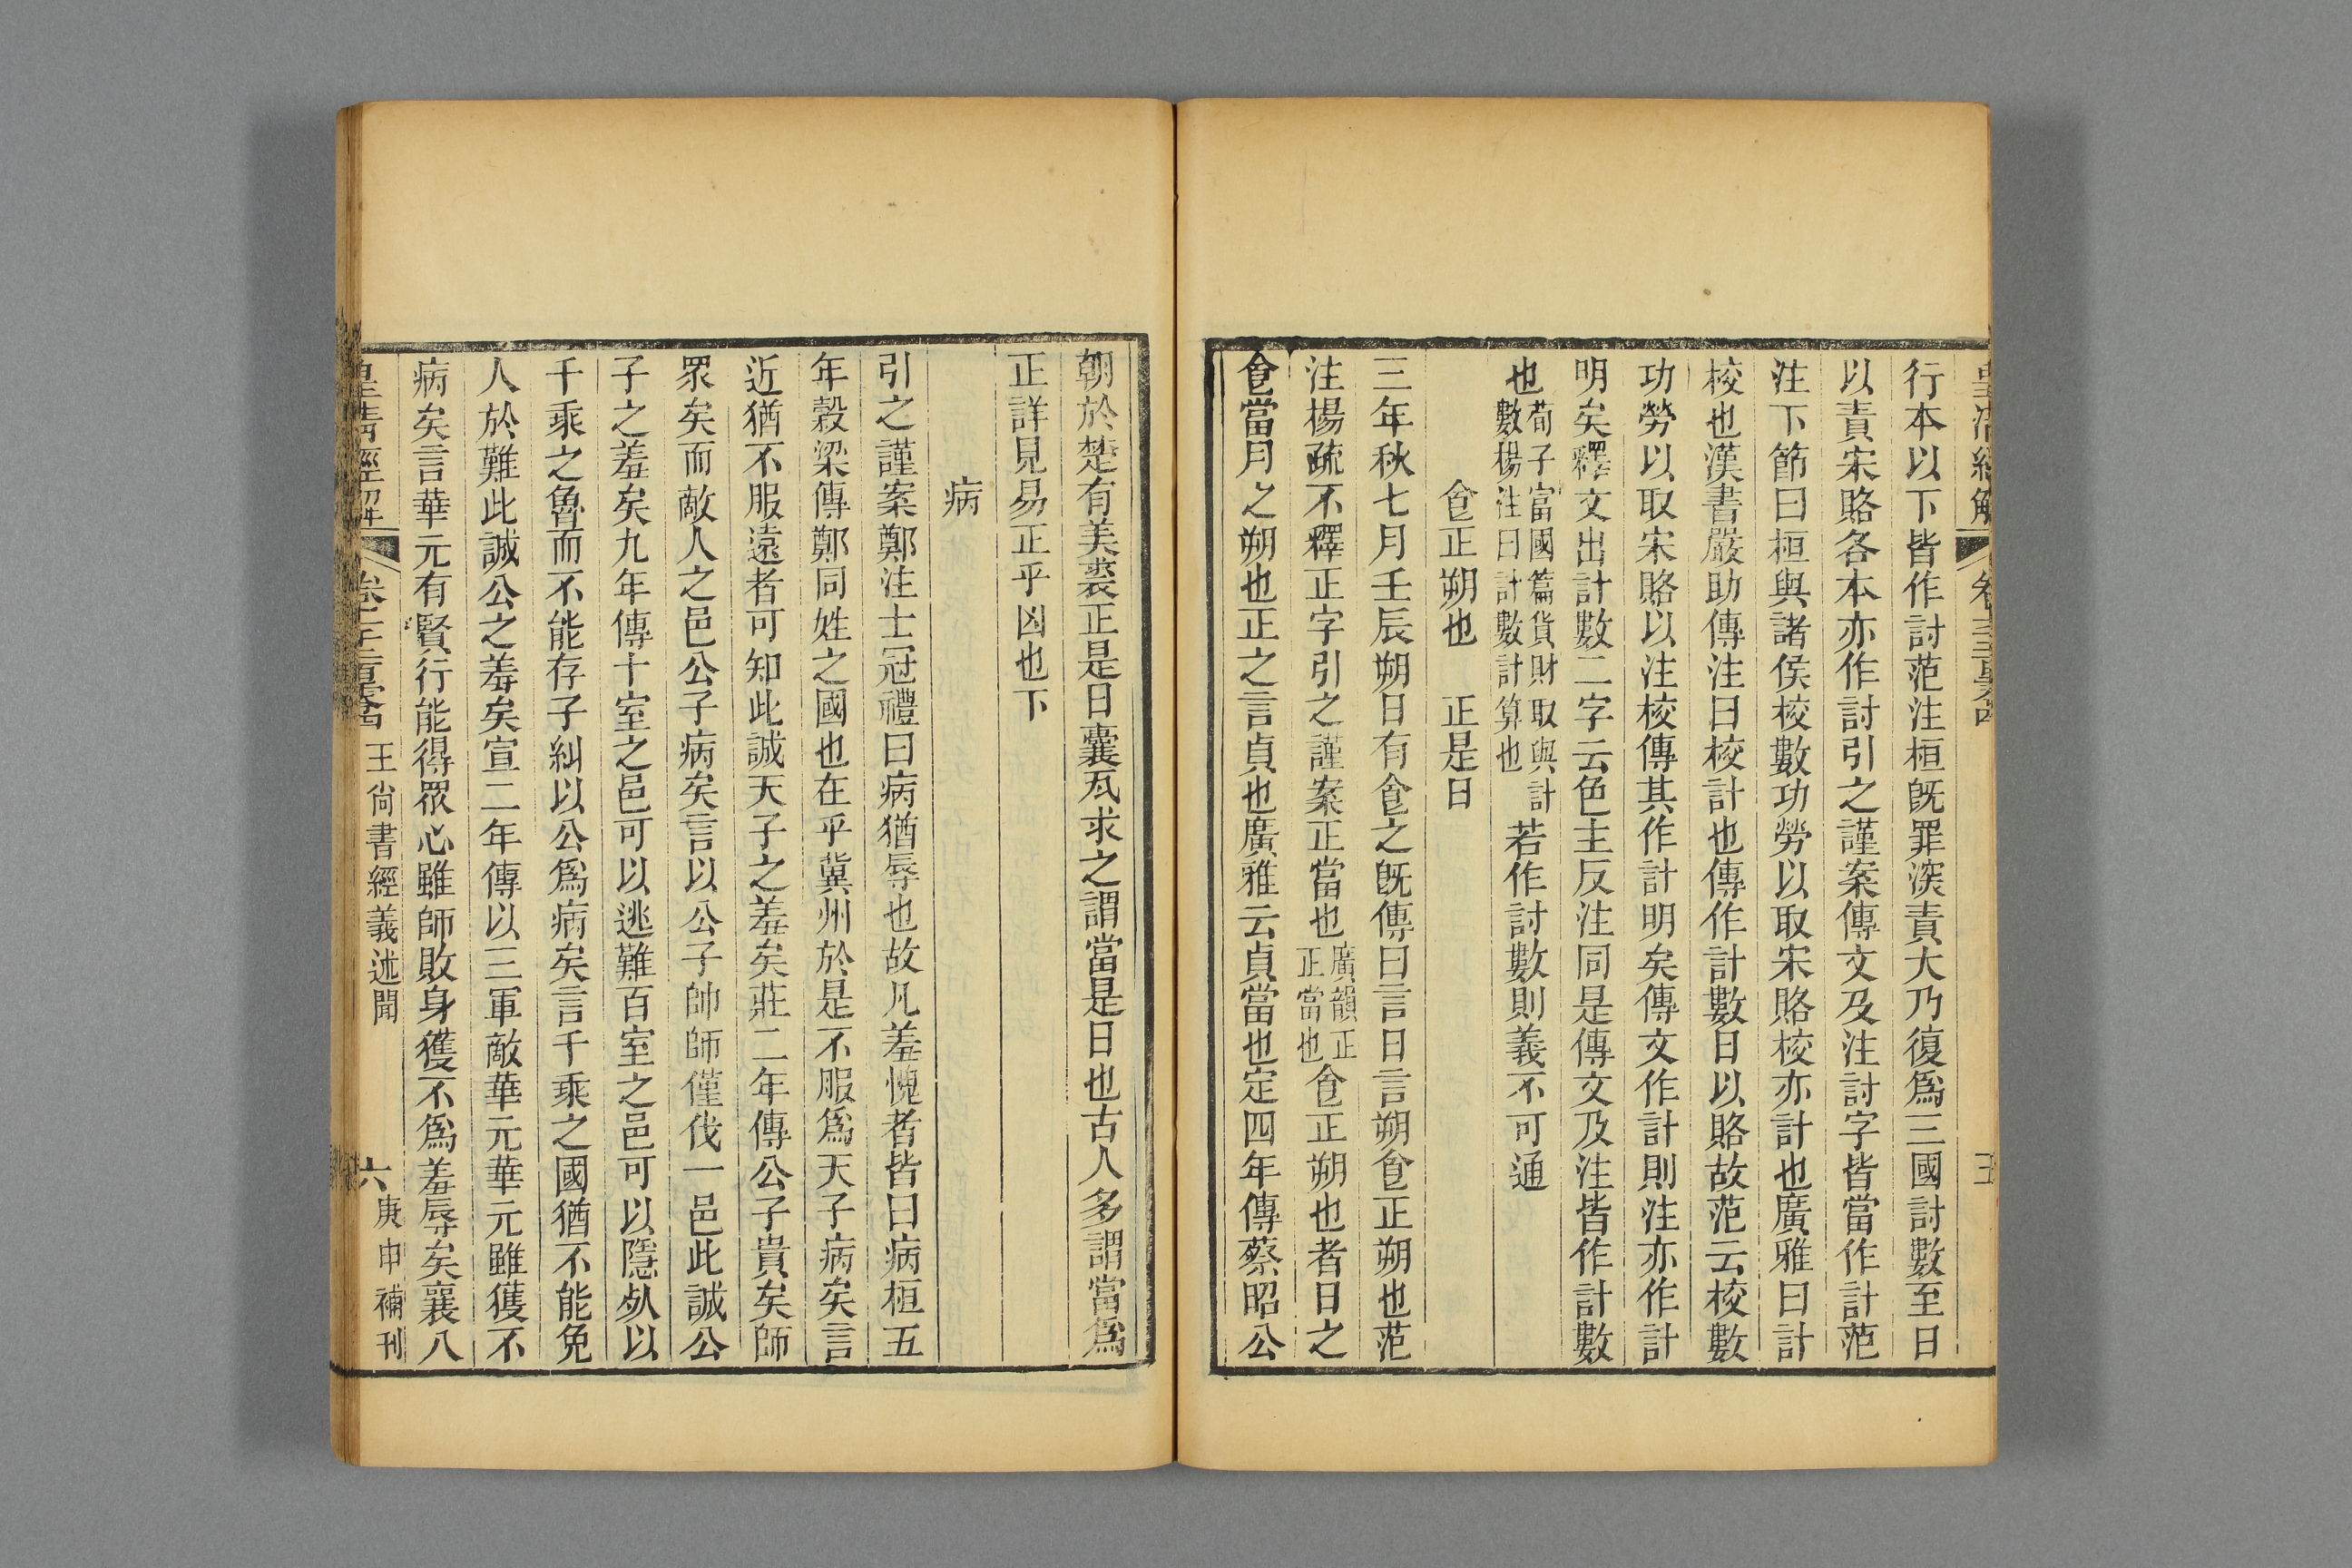 皇清經解
五
行本以下皆作討范注桓旣罪深責大乃復爲三國討數至日
以責宋賂各本亦作討引之謹案傳文及注討字皆當作計范
注下節曰桓與諸侯校數功勞以取宋賂校亦計也廣雅曰計
校也漢書嚴助傳注曰校計也傳作計數日以賂故范云校數
功勞以取宋賂以注校傳其作計明矣傳文作計則注亦作計
明矣釋文出計數二字云色主反注同是傳文及注皆作計數
也荀子富國篇貨財取與計數楊注曰計數計算也若作討數則義不可通
食正朔也　正是日
三年秋七月壬辰朔日有食之旣傳曰言日言朔食正朔也范
注楊疏不釋正字引之謹案正當也廣韻正正當也食正朔也者日之
食當月之朔也正之言貞也廣雅云貞當也定四年傳蔡昭公
朝於楚有美裘正是日囊瓦求之謂當是日也古人多謂當爲
正詳見易正乎凶也下
病
引之謹案鄭注士冠禮曰病猶辱也故凡羞愧者皆曰病桓五
年穀梁傳鄭同姓之國也在乎冀州於是不服爲天子病矣言
近猶不服遠者可知此誠天子之羞矣莊二年傳公子貴矣師
眾矣而敵人之邑公子病矣言以公子帥師僅伐一邑此誠公
子之羞矣九年傳十室之邑可以逃難百室之邑可以隱死以
千乘之魯而不能存子糾以公爲病矣言千乘之國猶不能免
人於難此誠公之羞矣宣二年傳以三軍敵華元華元雖獲不
病矣言華元有賢行能得眾心雖師敗身獲不爲羞辱矣襄八
皇清經解
王尚書經義述聞
六
庚申補刊